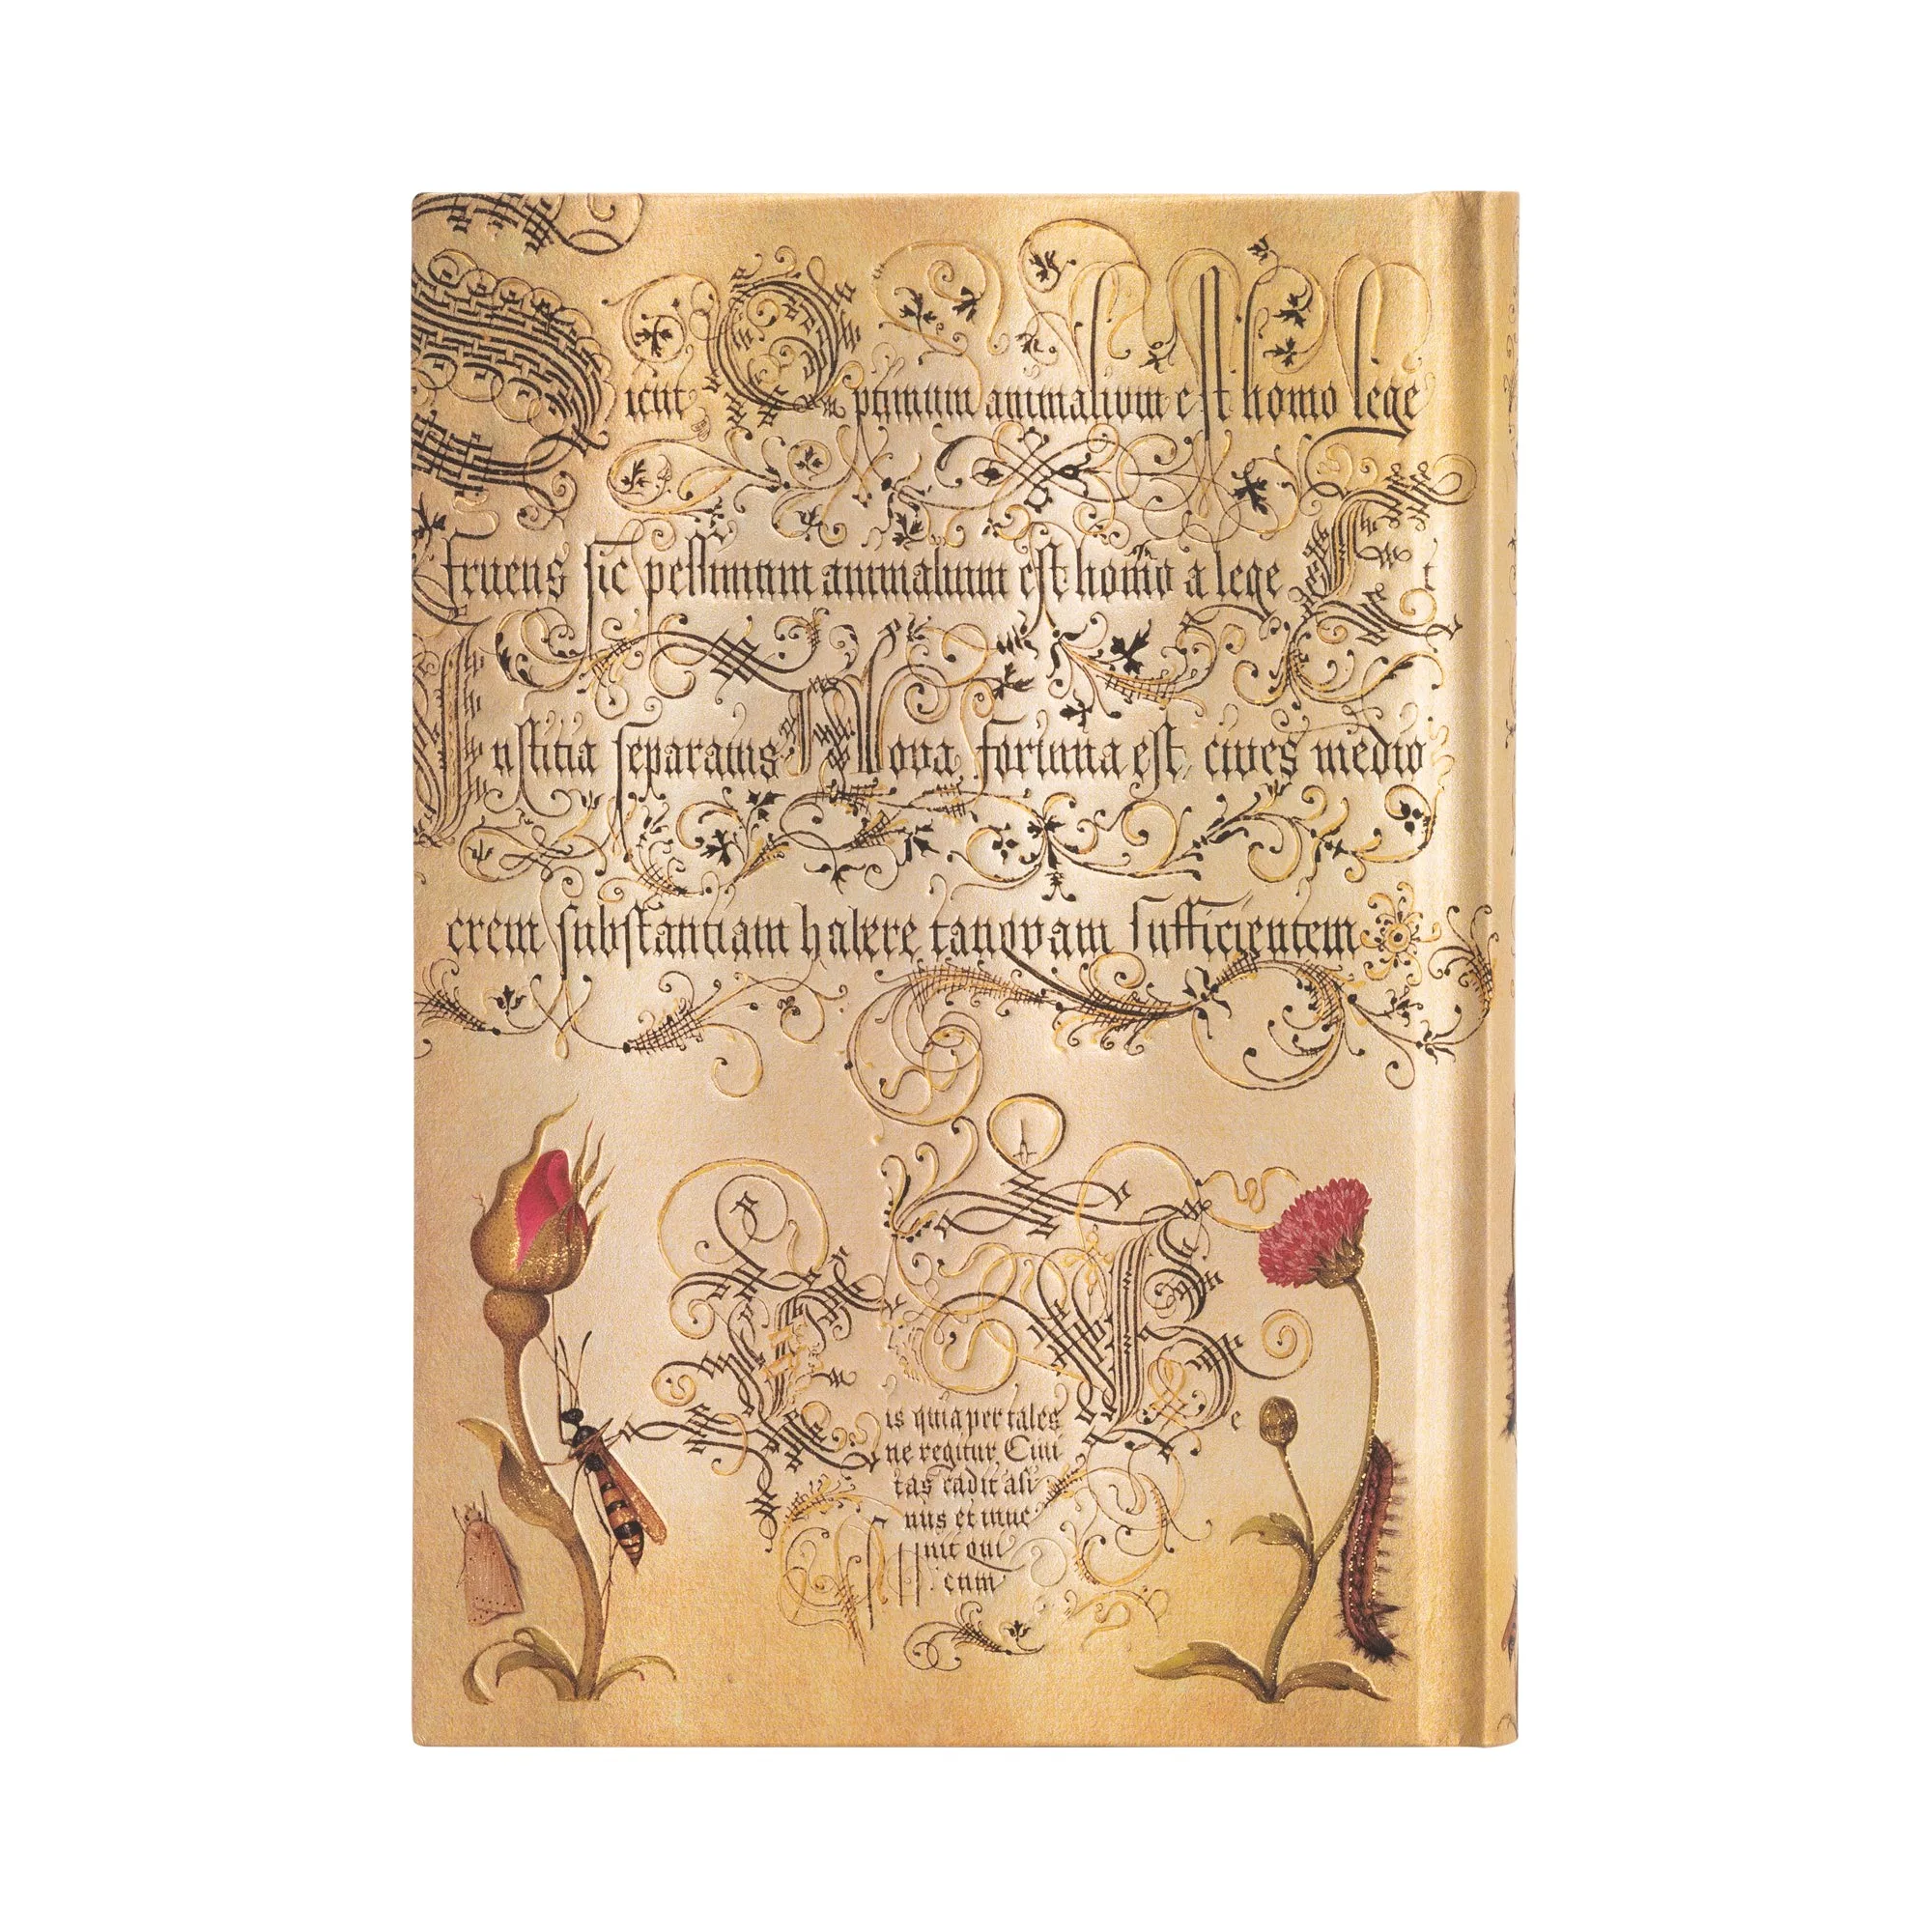 Sicut Optimum animalivm est homo lege
fruens sic pessimum animalium est homo a lege Et
Iustitia separatus Nova fortuna est, cives medio
crem substantiam habere tanqvam sufficientem
is quia per tales Be
ne regitur Civi
tas cadit asi
nus et inve
nit qui
cum